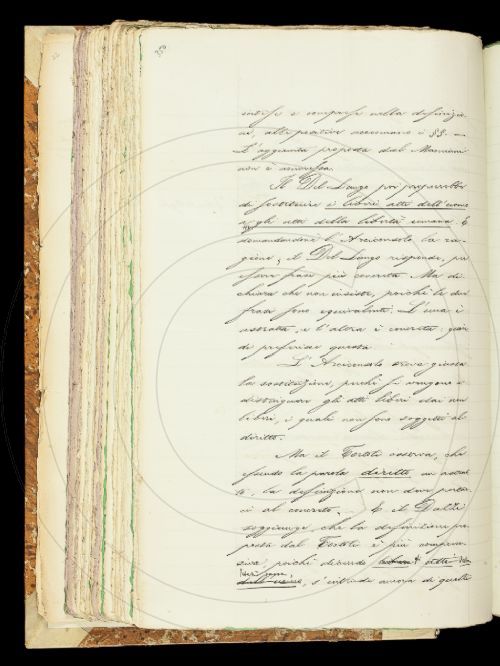 intesse e comprese nella definizio
ni, alle pratiche accennano i §§. —
L'aggiunta proposta dal Mamiani
non è ammessa.
Il Del Longo poi proporrebbe
di sostituire i liberi atti dell'uomo
a gli atti della libertà umana. E
domandandone l'Arcione la ra-
gione, il Del Longo risponde, per
essere frase più concreta. Ma di-
chiara che non insiste, poichè le due
frasi sono equivalenti. L'una è
astratta, e l'altra è concreta:
di preferire questa.
L' trova giusta
la sostituzione, perchè si vengono a
distinguere gli atti liberi dai non
liberi, i quali non sono soggetti al
diritto.
Ma il Tortoli osserva, che
essendo la parola diritto un astrat-
to, la definizione non deve porta-
ci al concreto. E il Dalzi
soggiunge, che la definizione pro-
posta dal Tortoli è più compren-
siva, poichè dicendo atti
, s'intende ancora di quelli